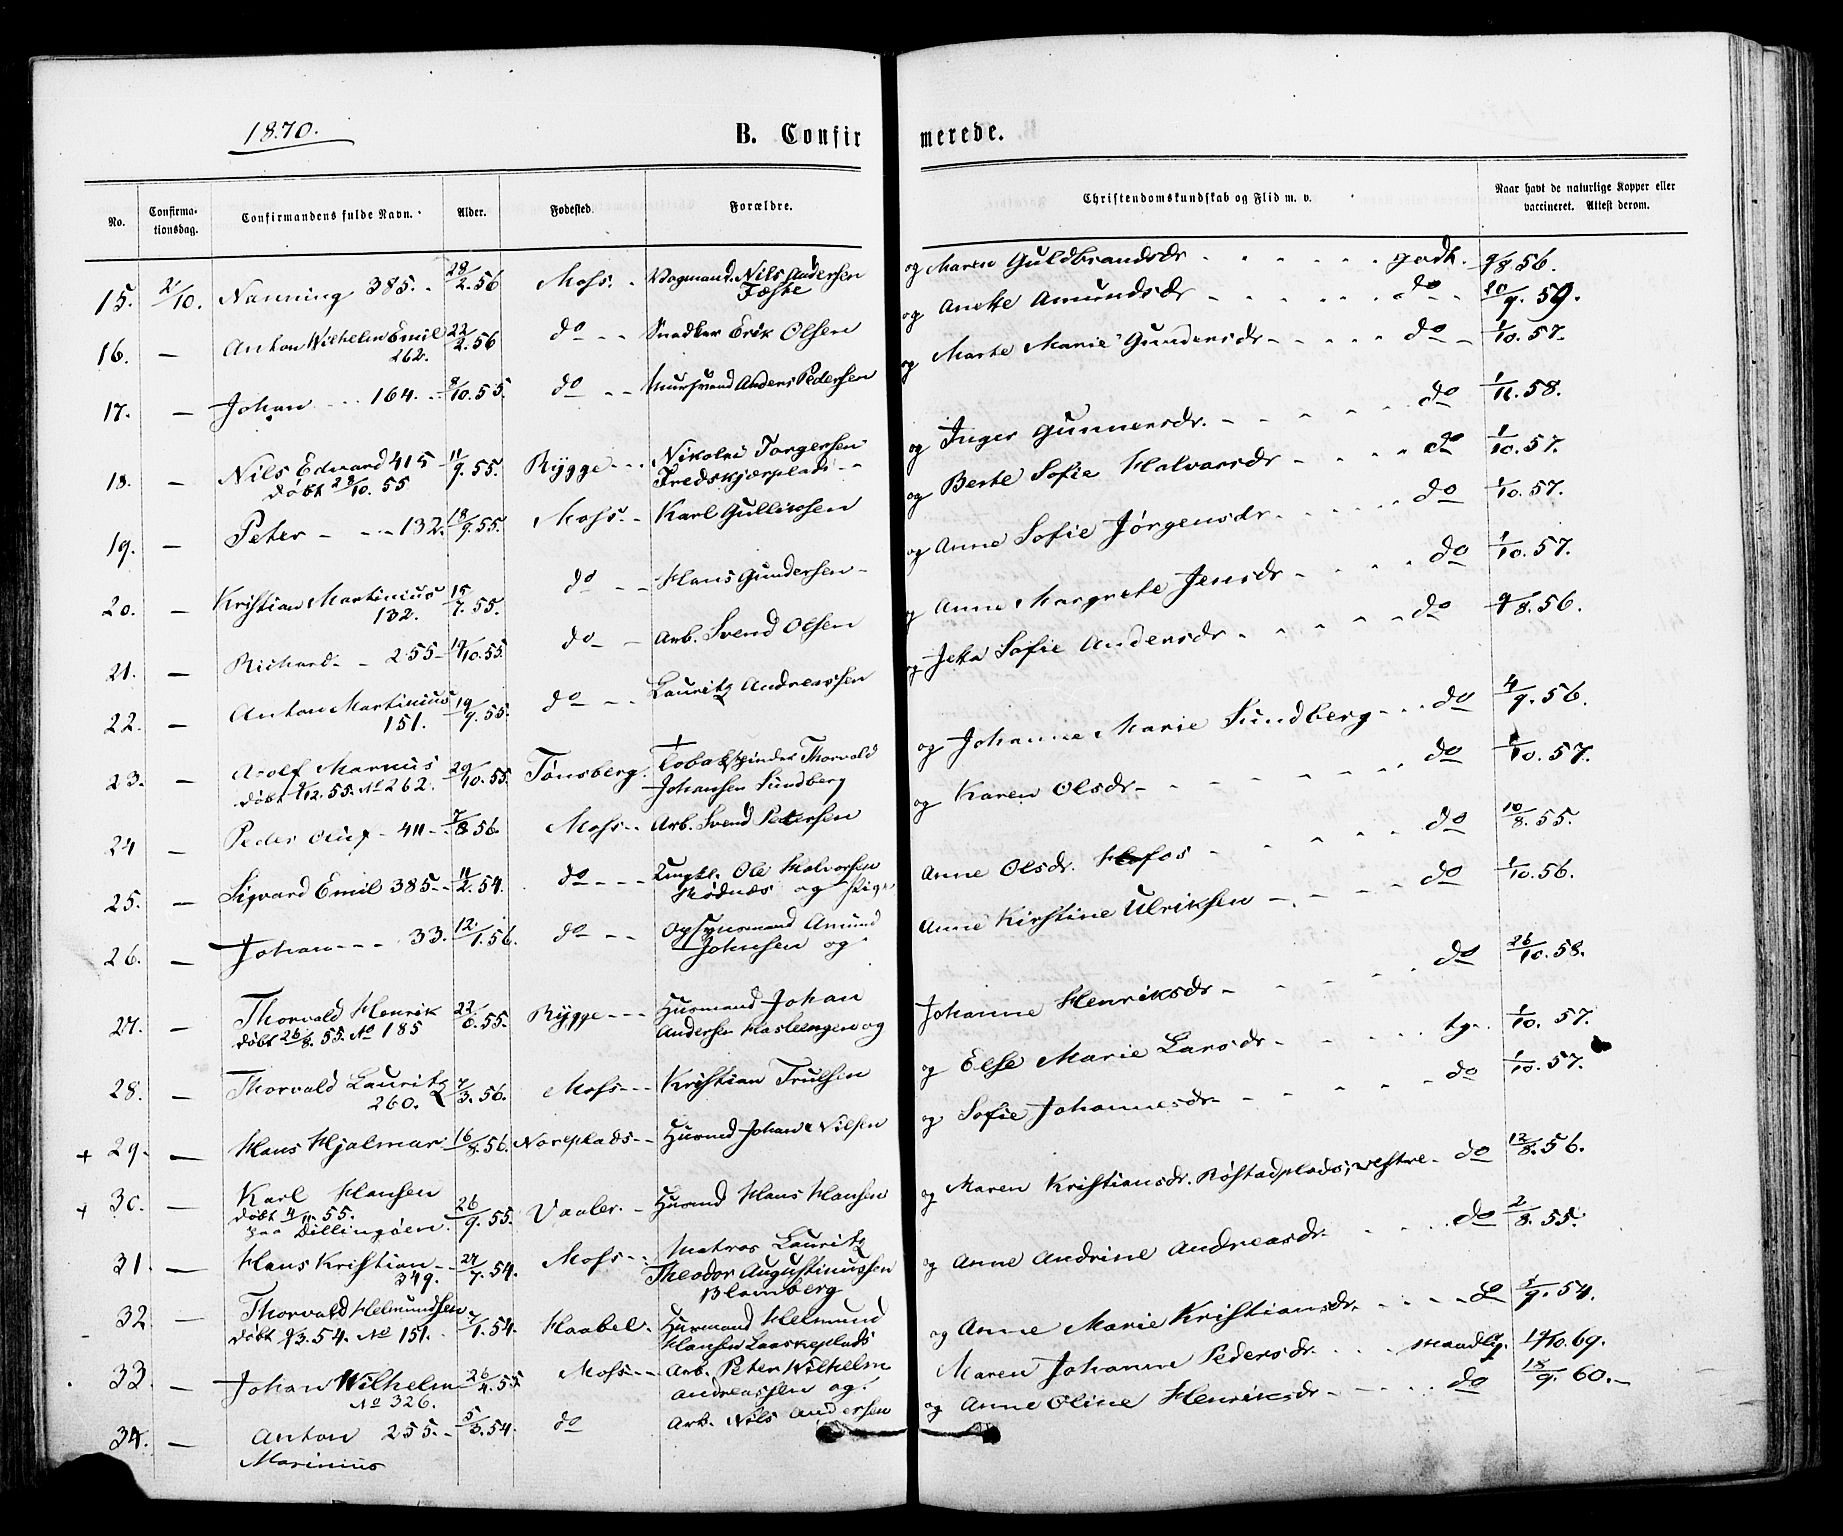 1870.
B. Confirmerede.
No. Confirmationsdag. Confirmandens fulde Navn. Alder. Fødested. Forældre. Christendomskundskab og Flid m. v. Naar havt de naturlige Kopper eller vaccineret. Attest derom.
15. 2/10. Nanning 385. 28/2.56 Mofs. Nils Andersen Fæste og Maren Guldbrandsdr godt. 9/8 56.
16. — Anton Wilhelm Emil 262. 22/2.56 do Snedker Erik Olsen og Anette Amundsdr do 20/9. 59.
17. — Johan 164. 8/10.55 do Anders Pedersen og Marte Marie Gundersdr do 1/10.57.
18. — Nils Edvard 415 døbt 28/10.55 11/9.55. Rygge Nikolai Torgersen og Inger Gunnersdr. do 1/11.58.
19. — Peter 132. 18/9.55. Mofs. Karl Gulliksen og Berte Sofie Halvorsdr do 1/10.57.
20. — Kristian Martinius 132. 15/7.55. do Hans Gundersen og Anne Sofie Jørgensdr do 1/10.57.
21. — Richard 255 14/10.55. do Arb. Svend Olsen og Anne Margrete Jensdr do 1/10.57.
22. — Anton Martinius 151. 19/9.55. do Lauritz Andreassen og Jetta Sofie Andersdr do 9/8.56.
23. — Adolf Marnus døbt 9/12.55. No 262. 20/10.55. Tønsberg. + Tobakspinder Thorvald Johansen Sundberg og Johanne Marie Sundberg do 4/9.56.
24 — Peder 411 7/8 56 Mofs Arb. Svend Petersen og Karen Olsdr do 1/10.57.
25. — Sigvard Emil 385 11/2.54. do Ungkl. Ole Halvorsen Rødnæs og Pige Anne Olsdr. Hofos do 10/8.55.
26. — Johan 33. 12/1.56. do Opsynsmand Amund Johnsen og Anne Kirstine Ulriksen do 1/10.56.
27. — Thorvald Henrik døbt 26/8.55. No 185 22/6.55. Rygge Husmand Johan Andersen Haslengen og Johanne Henriksdr do 26/10.58.
28. — Thorvald Lauritz 260. 7/3.56. Mofs Kristian Trulsen og Else Marie Larsdr tg. 1/10. 57.
+ 29. — Hans Hjalmar 16/8.56. Noreplads Husmd Johan Nilsen og Sofie Johannesdr do 1/10.57.
+ 30. — Karl Hansen døbt 4/11.55. paa Dillingøen. 26/9.55. Vaaler. Husmd Hans Hansen og Maren Kristiansdr. Røstadplads, vestre do 12/8.56.
31. — Hans Kristian 349. 27/7.54. Mofs Matros Lauritz Theodor Augustinussen Blomberg og Anne Andrine Andreasdr. do 2/8.55.
32. — Thorvald Helmundsen døbt 9/3.54. No 151. 7/1.54. Haabel. Husmand Helmund Hansen Laaskeplads og Anne Marie Kristiansdr. do 5/9.54.
33. — Johan Wilhelm No 326. 26/4.55 Mofs Arb. Peter Wilhelm Andreassen og Maren Johanne Pedersdr. maadlig. 14/10.69.
34. — Anton Marinius 255. 5/3.54. do Arb. Nils Andersen og Anne Oline Henriksdr do 18/9.60.